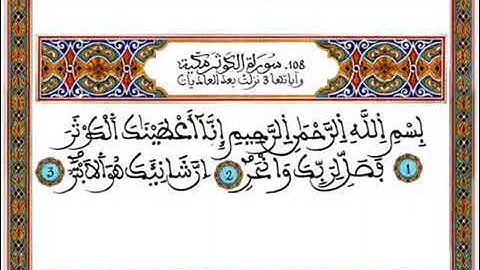 108. سورة الكوثر مكية
وآياتها 3 نزلت بعد العاديات
بِسْمِ اِللَّهِ اِلرَّحْمَٰنِ اِلرَّحِيمِ إِنَّآ أَعْطَيْنَٰكَ اَلْكَوْثَرَ
1 فَصَلِّ لِرَبِّكَ وَانْحَرِ 2 اِنَّ شَانِئَكَ هُوَ اَلَابْتَرُ 3